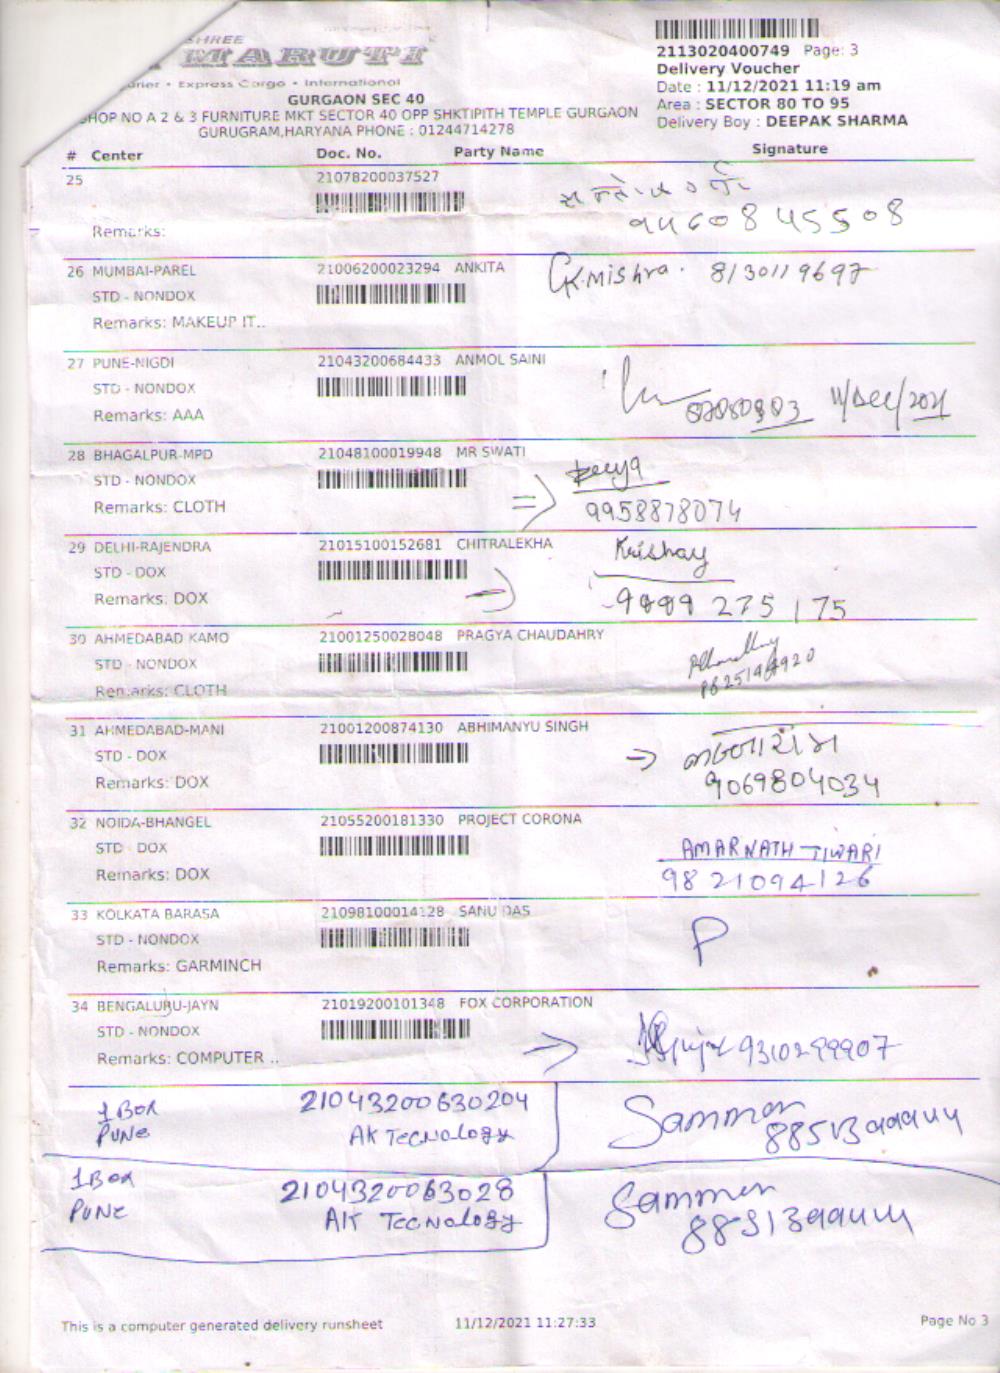 SHREE
MARUTI
Courier • Express Cargo • International
GURGAON SEC 40
SHOP NO A 2 & 3 FURNITURE MKT SECTOR 40 OPP SHKTIPITH TEMPLE GURGAON
GURUGRAM,HARYANA PHONE : 01244714278
2113020400749 Page: 3
Delivery Voucher
Date : 11/12/2021 11:19 am
Area : SECTOR 80 TO 95
Delivery Boy : DEEPAK SHARMA
# Center Doc. No. Party Name Signature
25 21078200037527
9460845508
Remarks:
26 MUMBAI-PAREL 21006200023294 ANKITA CK.Mishra. 8130119697
STD - NONDOX
Remarks: MAKEUP IT..
27 PUNE-NIGDI 21043200684433 ANMOL SAINI
STD - NONDOX
Remarks: AAA 11/Dec/2021
28 BHAGALPUR-MPD 21048100019948 MR SWATI
STD - NONDOX
Remarks: CLOTH 9958878074
29 DELHI-RAJENDRA 21015100152681 CHITRALEKHA Krishay
STD - DOX
Remarks: DOX 9899 275 175
30 AHMEDABAD KAMO 21001250028048 PRAGYA CHAUDAHRY
STD - NONDOX
Remarks: CLOTH
31 AHMEDABAD-MANI 21001200874130 ABHIMANYU SINGH
STD - DOX
Remarks: DOX 9069804034
32 NOIDA-BHANGEL 21055200181330 PROJECT CORONA
STD - DOX AMARNATH TIWARI
Remarks: DOX 9821094126
33 KOLKATA BARASA 21098100014128 SANU DAS
STD - NONDOX P
Remarks: GARMINCH
34 BENGALURU-JAYN 21019200101348 FOX CORPORATION
STD - NONDOX
Remarks: COMPUTER .. 9310299907
1 BOX 21043200630204 Sammer
PUNE AK TecNology
1 BOX 2104320063028 Sammer
PUNE AK TecNology
This is a computer generated delivery runsheet 11/12/2021 11:27:33 Page No 3